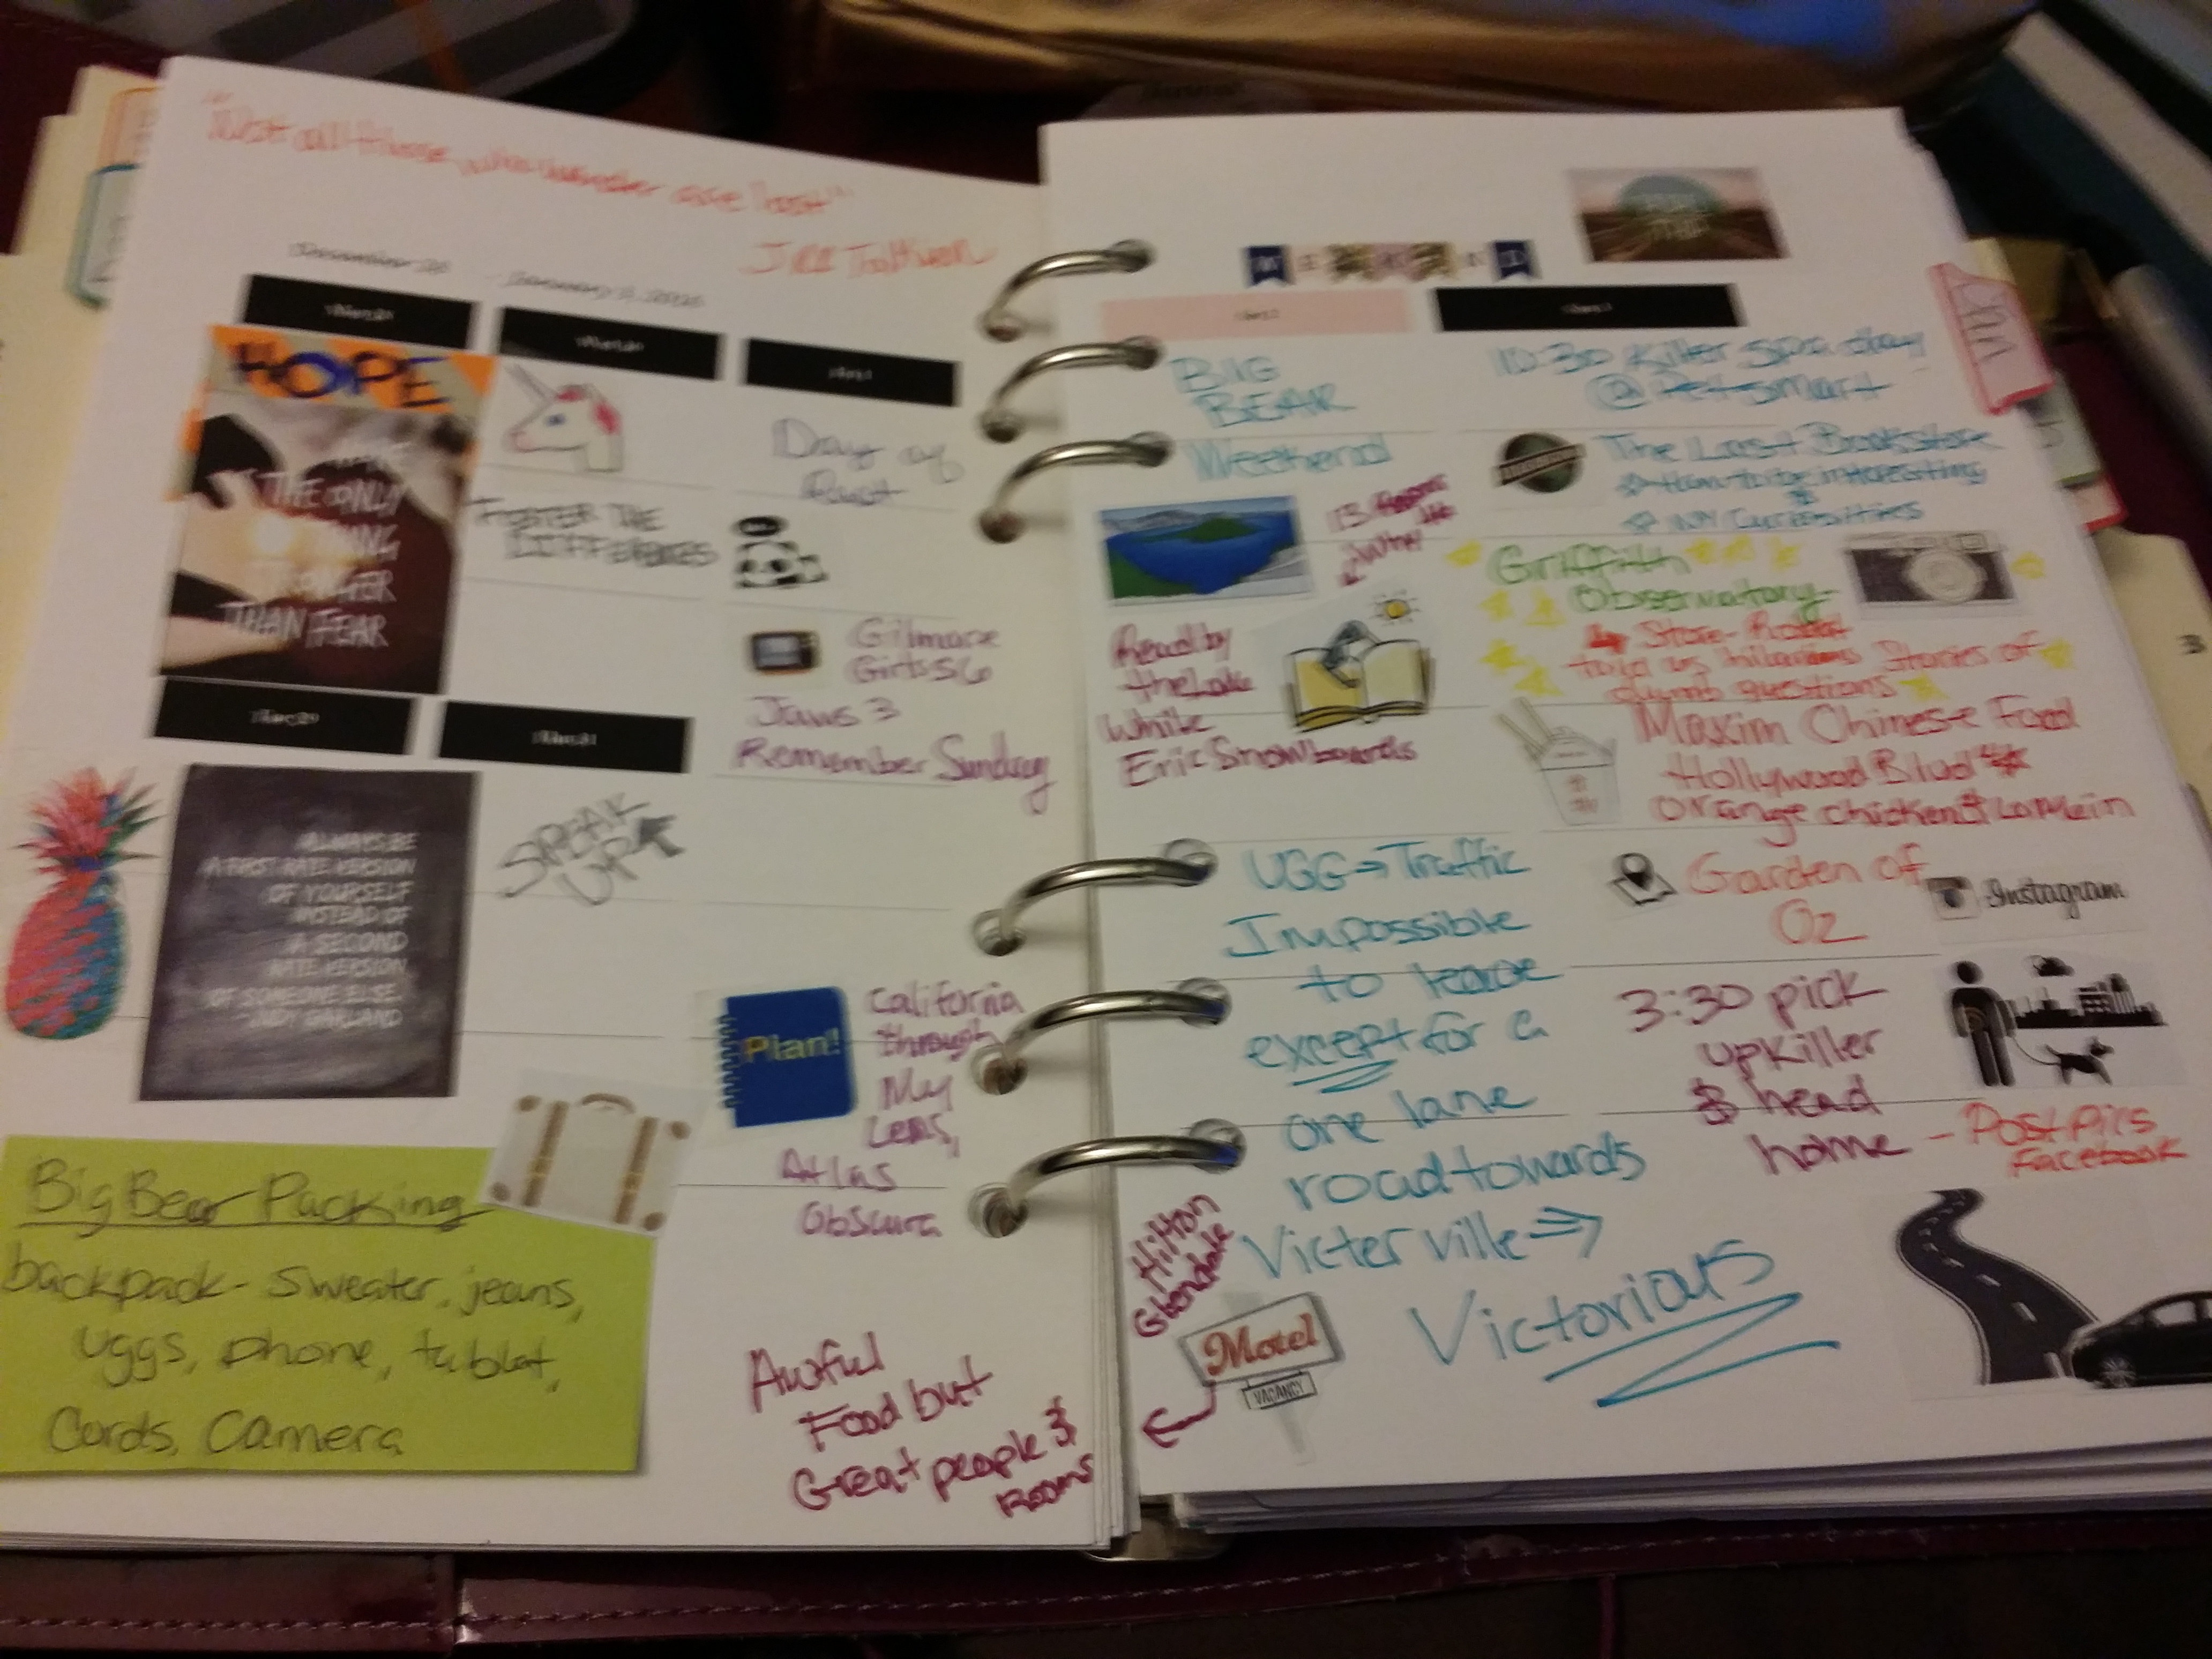 "Not all those who wander are lost"
HOPE
THE ONLY
THING
STRONGER
THAN FEAR
FOSTER THE
DIFFERENCES
Day of
Rest
Gilmore
Girls S6
Jaws 3
Remember Sunday
ALWAYS BE
A FIRST RATE VERSION
OF YOURSELF
INSTEAD OF
A SECOND
RATE VERSION
OF SOMEONE ELSE.
- JUDY GARLAND
SPEAK
UP
Plan!
California
through
My
Lens,
Atlas
Obscura
Big Bear Packing
backpack - sweater, jeans,
uggs, phone, tablet,
Cords, Camera
Awful
Food but
Great people &
rooms
WEEKEND
BIG
BEAR
Weekend
Read by
the Lake
While
Eric Snowboards
UGG → Traffic
Impossible
to leave
except for a
one lane
road towards
Victerville ⇒
Victorious
Hilton
Glendale
Motel
VACANCY
10:30 Killer spa day
@ Petsmart
The Last Bookstore
How to be interesting
&
NY Curiosities
Griffith
Observatory
Store - Robot
told us hilarious Stories of
dumb questions
Maxim Chinese Food
Hollywood Blvd
orange chicken & LoMein
Garden of
Oz
Instagram
3:30 pick
up Killer
& head
home - Post Pics
Facebook
3